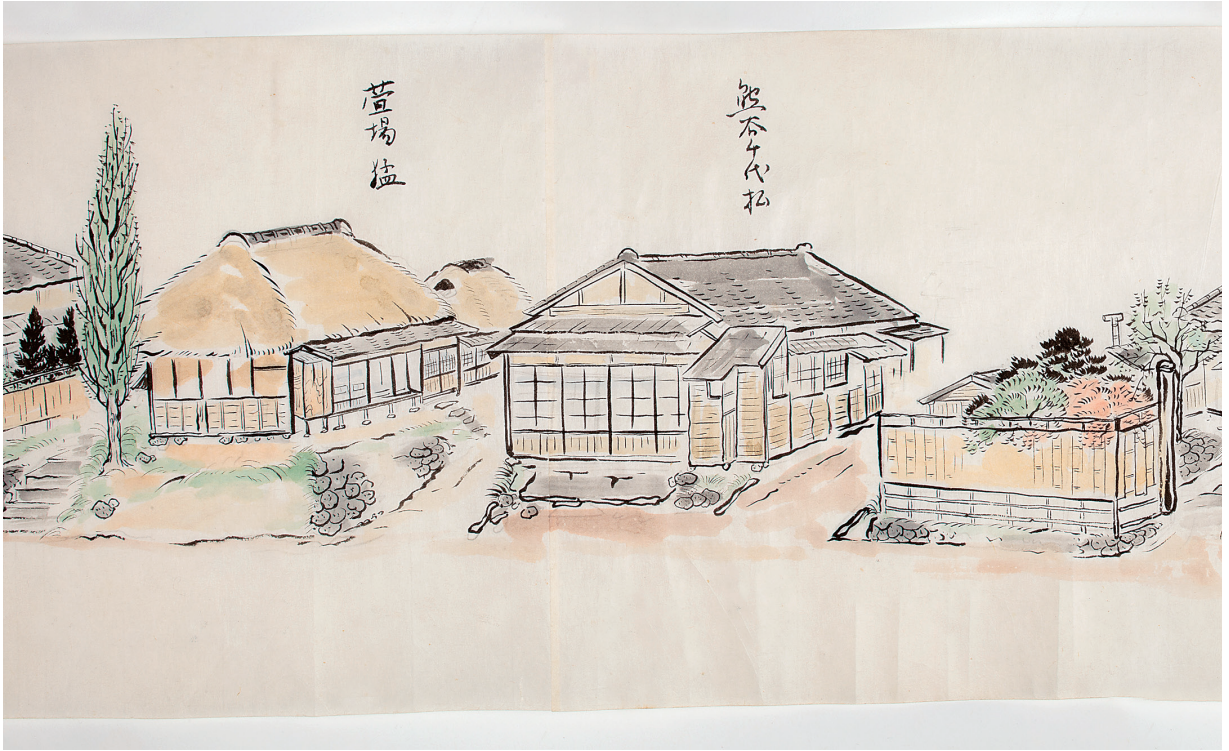 熊谷千代松
萱場 猛